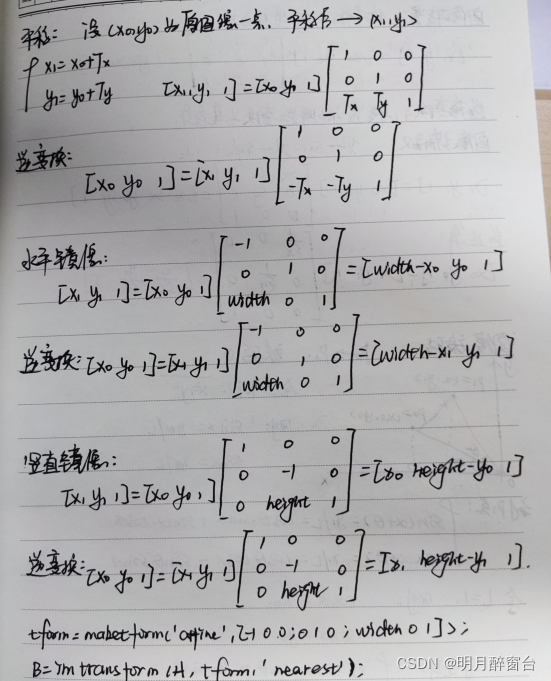 平移：设(x0,y0)为原图像一点，平移后→(x1,y1)
{ x1=x0+Tx
y1=y0+Ty [x1 y1 1]=[x0 y0 1] [1 0 0
0 1 0
Tx Ty 1]
逆变换：
[x0 y0 1]=[x1 y1 1] [1 0 0
0 1 0
-Tx -Ty 1]
水平镜像：
[x1 y1 1]=[x0 y0 1] [-1 0 0
0 1 0
width 0 1] =[width-x0 y0 1]
逆变换：[x0 y0 1]=[x1 y1 1] [-1 0 0
0 1 0
width 0 1] =[width-x1 y1 1]
竖直镜像：
[x1 y1 1]=[x0 y0 1] [1 0 0
0 -1 0
0 height 1] =[x0 height-y0 1]
逆变换：[x0 y0 1]=[x1 y1 1] [1 0 0
0 -1 0
0 height 1] =[x1 height-y1 1].
tform=maketform('affine',[-1 0 0;0 1 0;width 0 1]);
B=imtransform(A,tform,'nearest');
CSDN @明月醉窗台